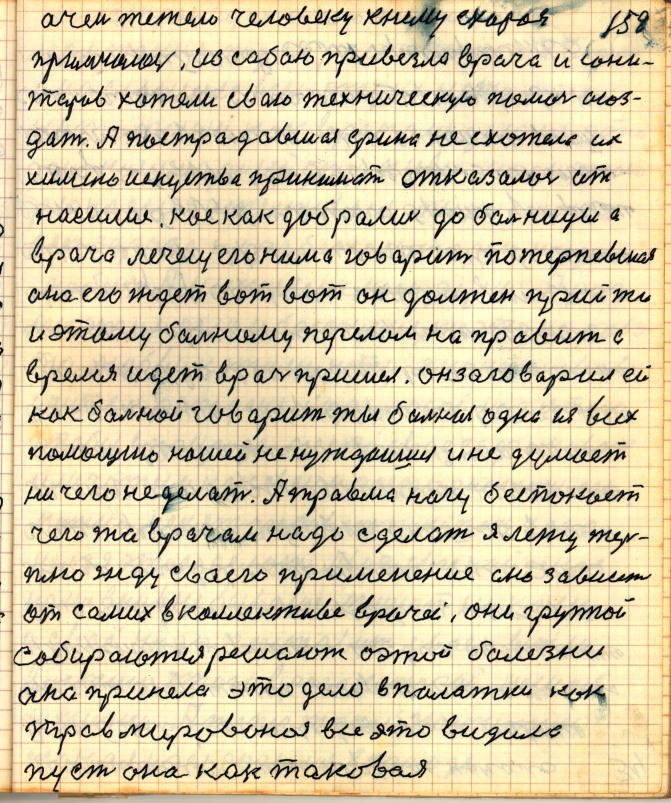 очен тежело человеку кнему скорая 159
примчалас, из собою привезла врача и сани-
таров хотели сваю техническую помоч соз-
дат. А пострадавшая ерина не схотела их
химию искуства принимат отказалос от
насилие. кое как добралис до болницы а
врача лечещего нима говарит потерпевшая
она его ждет вот вот он должен прийти
и этому болному перелом на правит а
время идет врач пришел. он заговарил ей
как болной говарит ты болная одна из всех
помощию нашей не нуждаишся и не думаст
ни чего не делат. А травма ногу беспокоет
чего та врачам надо сделат я лежу тер-
плю жду сваего применение оно зависит
от самих в коллективе врачей, они групой
собираются решают о этой болезни
она принела это дело впалатки как
травмированоя все это видила
пуст она как таковая